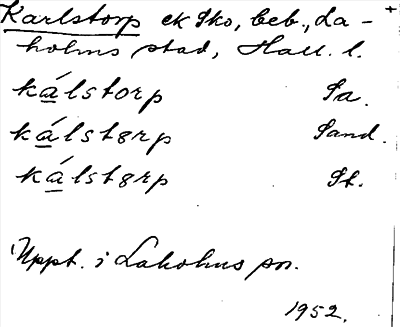 Karlstorp ek Sko, beb., La-
holms stad, Hall. l.
kálstorp Sa.
kálstɞrp Sand.
kálstɞrp St.
Uppt. i Laholms sn.
1952.